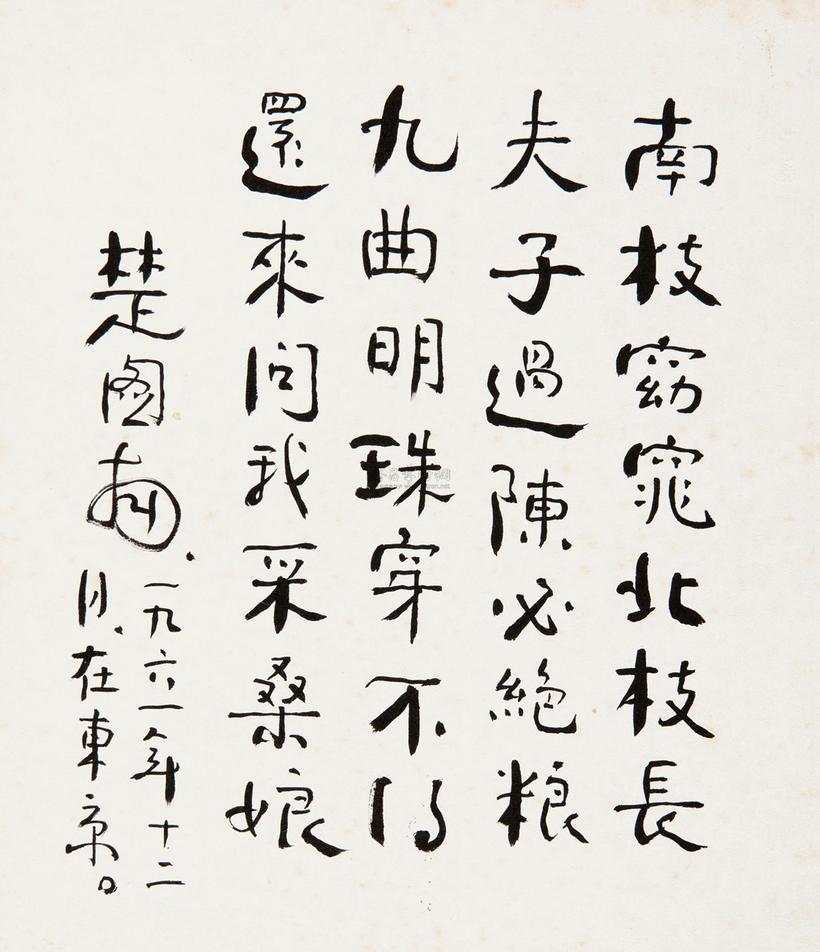 南枝窈窕北枝長
夫子過陳必絶粮
九曲明珠穿不得
還來問我采桑娘
楚图南、
一九六一年十二
月、在東京。